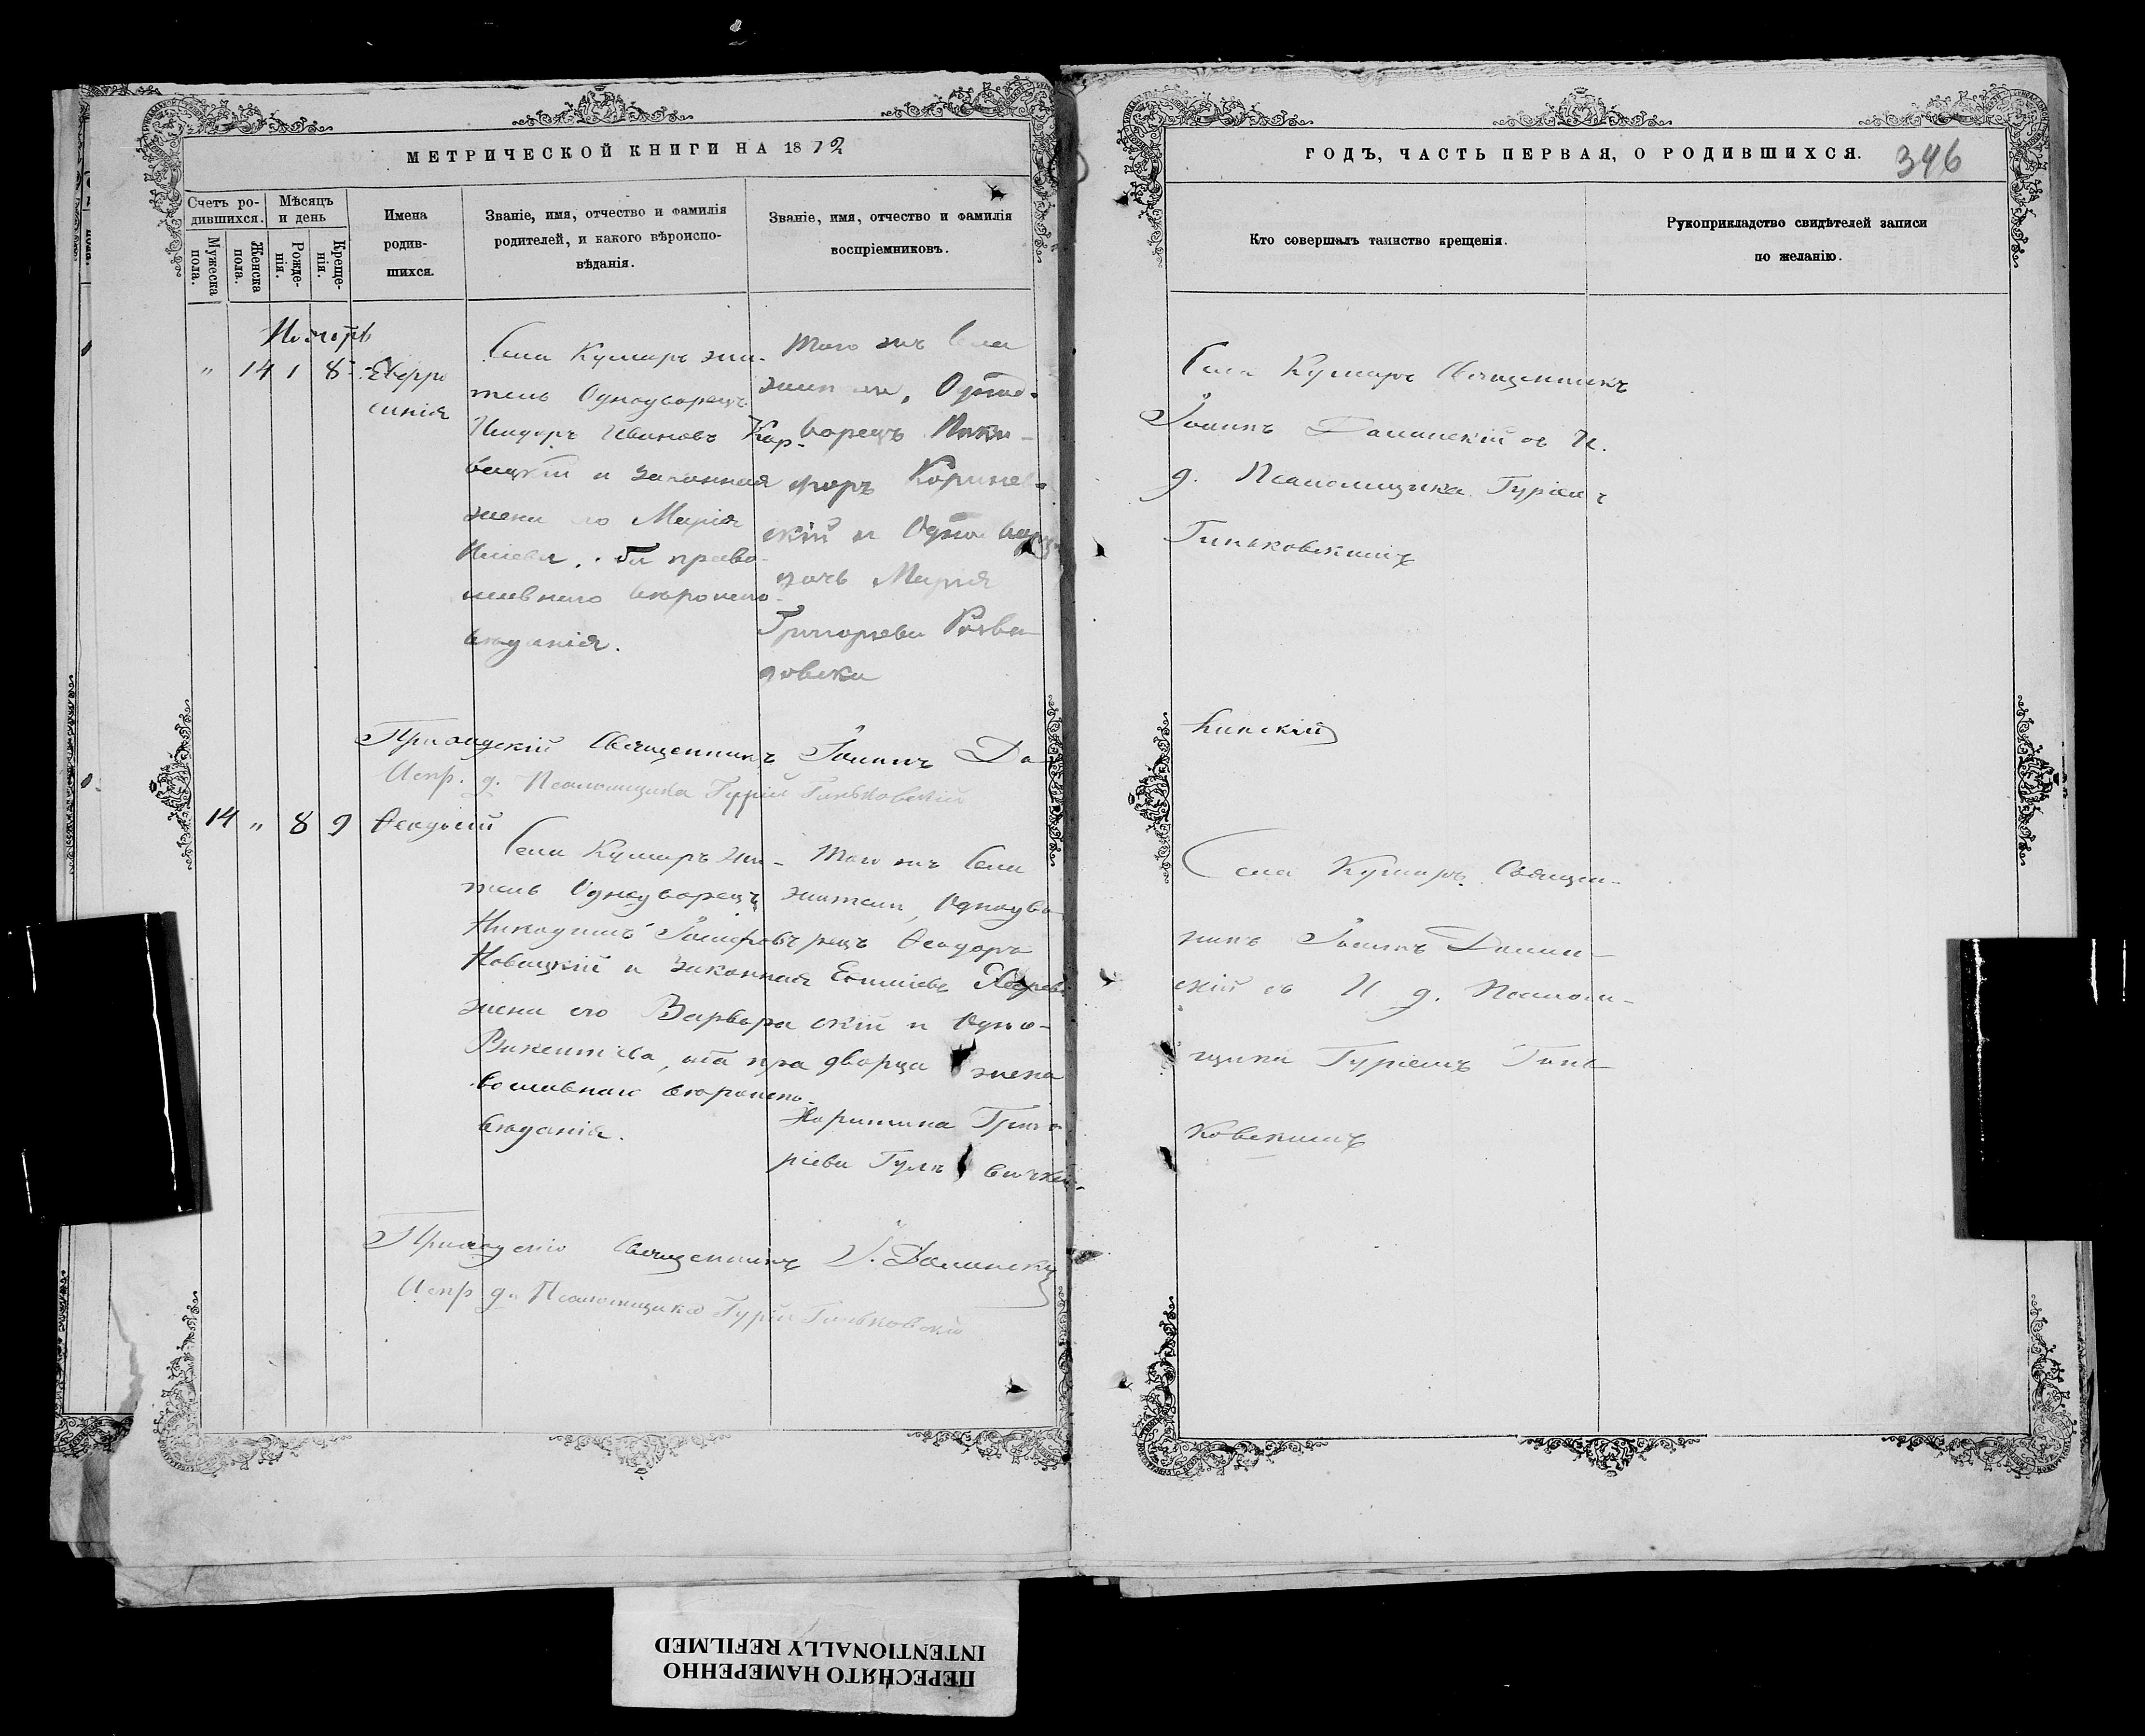 МЕТРИЧЕСКОЙ КНИГИ НА 1872
ГОДЪ, ЧАСТЬ ПЕРВАЯ, О РОДИВШИХСЯ.
346
Счетъ ро-
дившихся.
Мужеска
пола.
Женска
пола.
Мѣсяцъ
и день
Рожде-
нія.
Креще-
нія.
Имена
родив-
шихся.
Званіе, имя, отчество и фамилія
родителей, и какого вѣроиспо-
вѣданія.
Званіе, имя, отчество и фамилія
воспріемниковъ.
Кто совершалъ таинство крещенія.
Рукоприкладство свидѣтелей записи
по желанію.
Ноябрь
" 14 1 8
Евфро
синія
Села Кушмиръ жи-
тель Однодворецъ
Исидоръ Ивановъ
и законная
жена его Марія
оба право-
славнаго вѣроиспо-
вѣданія.
того же Села
жители, Одно-
ворецъ Ники-
форъ
скій и Одно
Марія
Григорьева
Села Кушмиръ Священникъ
Іоаннъ Долинскій съ И.
д. Псаломщика Гуріемъ
Гиньковскимъ
Приходскій Священникъ Іоаннъ До-
линскій
Испр. д. Псаломщика Гурій Гиньковскій
14 " 8 9
Ѳеодосій
Села Кушмиръ жи-
тель Однодворецъ
Никодимъ Іосифовъ
Новицкій и законная
жена его Варвара
Викентіева, оба пра
вославнаго вѣроиспо-
вѣданія.
Того же Села
жители, Однодво-
рецъ Ѳеодоръ
скій и Одно-
дворца жена
Харитина Григо
ріева
Села Кушмиръ Священ-
никъ Іоаннъ Долин-
скій съ И д. Псалом-
щика Гуріемъ Гинь-
ковскимъ
Приходскій Священникъ І. Долинскій
Испр д. Псаломщика Гурій Гиньковскій
ПЕРЕСНЯТО НАМЕРЕННО
INTENTIONALLY REFILMED